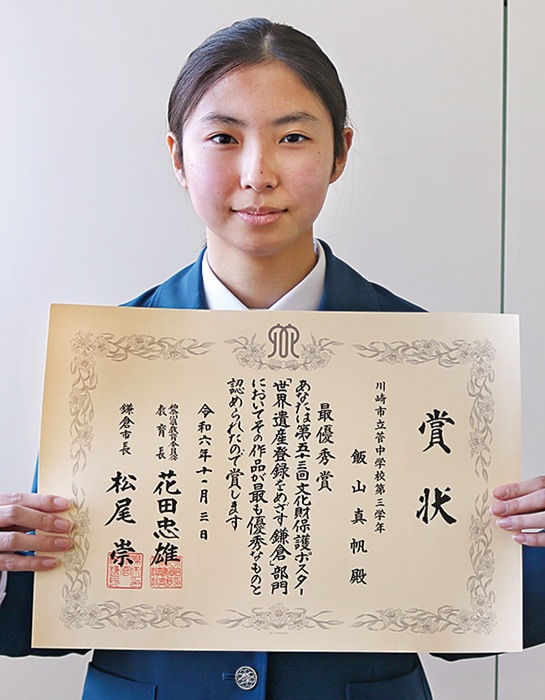 賞状
川崎市立菅中学校第三学年
飯山真帆殿
最優秀賞
あなたは第五十三回文化財保護ポスター
「世界遺産登録をめざす鎌倉」部門
においてその作品が最も優秀なものと
認められたので賞します
令和六年十一月三日
神奈川県教育委員会
教育長 花田忠雄
鎌倉市長 松尾崇